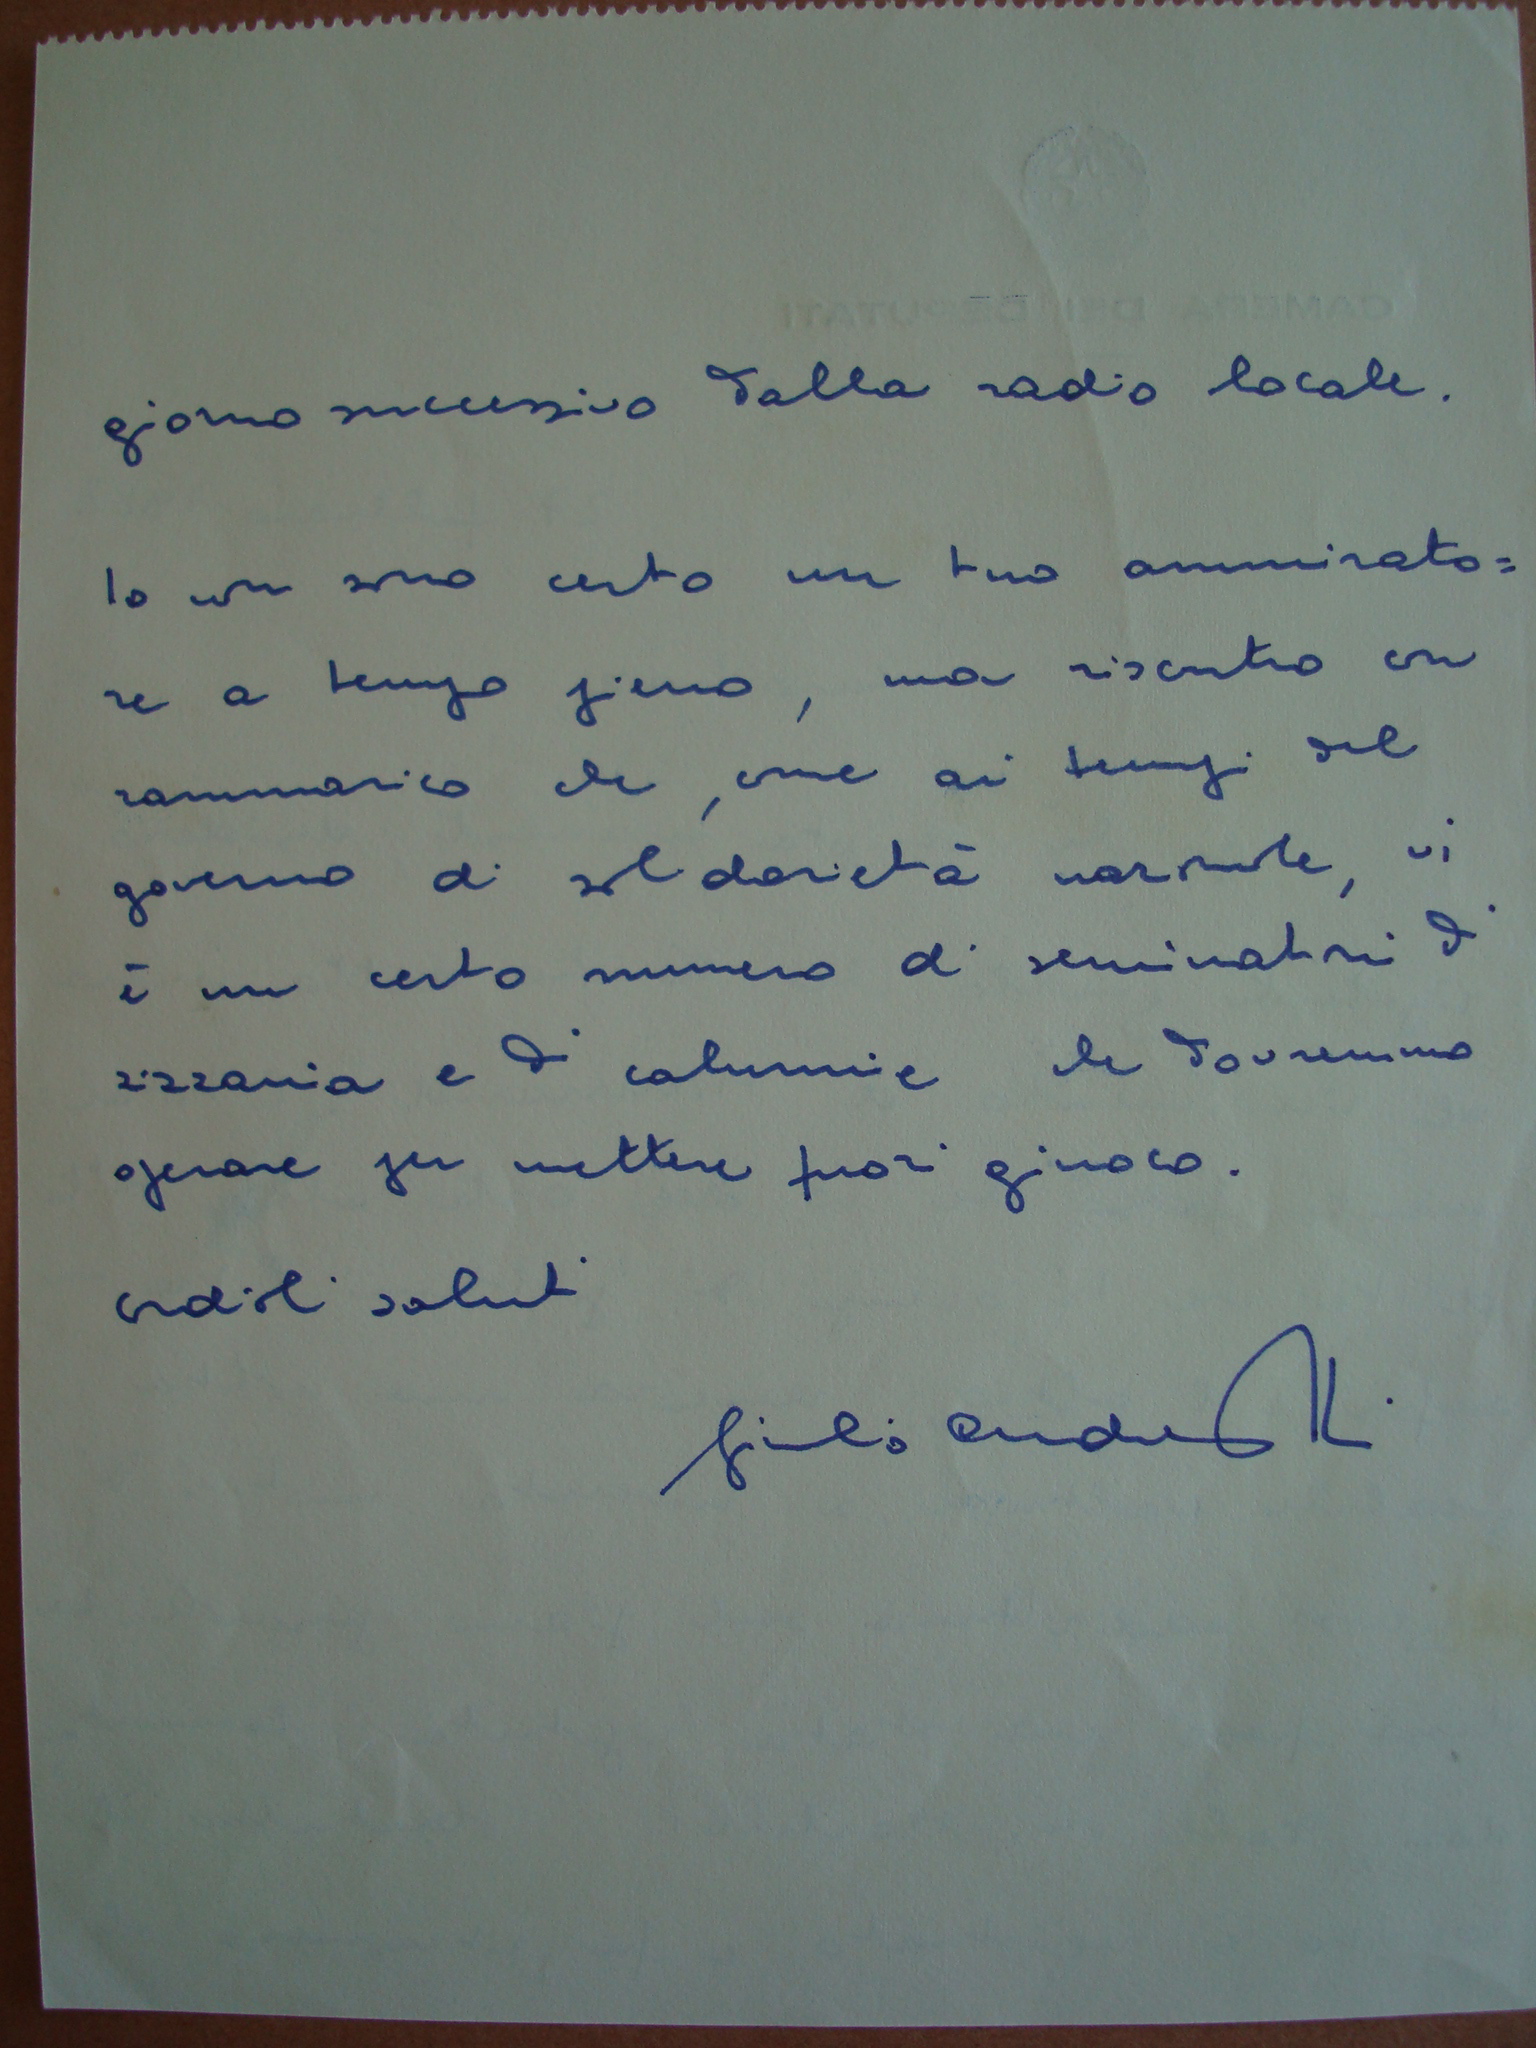 CAMERA DEI DEPUTATI
giorno successivo dalla radio locale.
Io non sono certo un tuo ammirato=
re a tempo pieno, ma riscontro con
rammarico che, come ai tempi del
governo di solidarietà nazionale, vi
è un certo numero di seminatori di
zizzania e di calunnie che dovremmo
operare per mettere fuori giuoco.
cordiali saluti
Giulio Andreotti